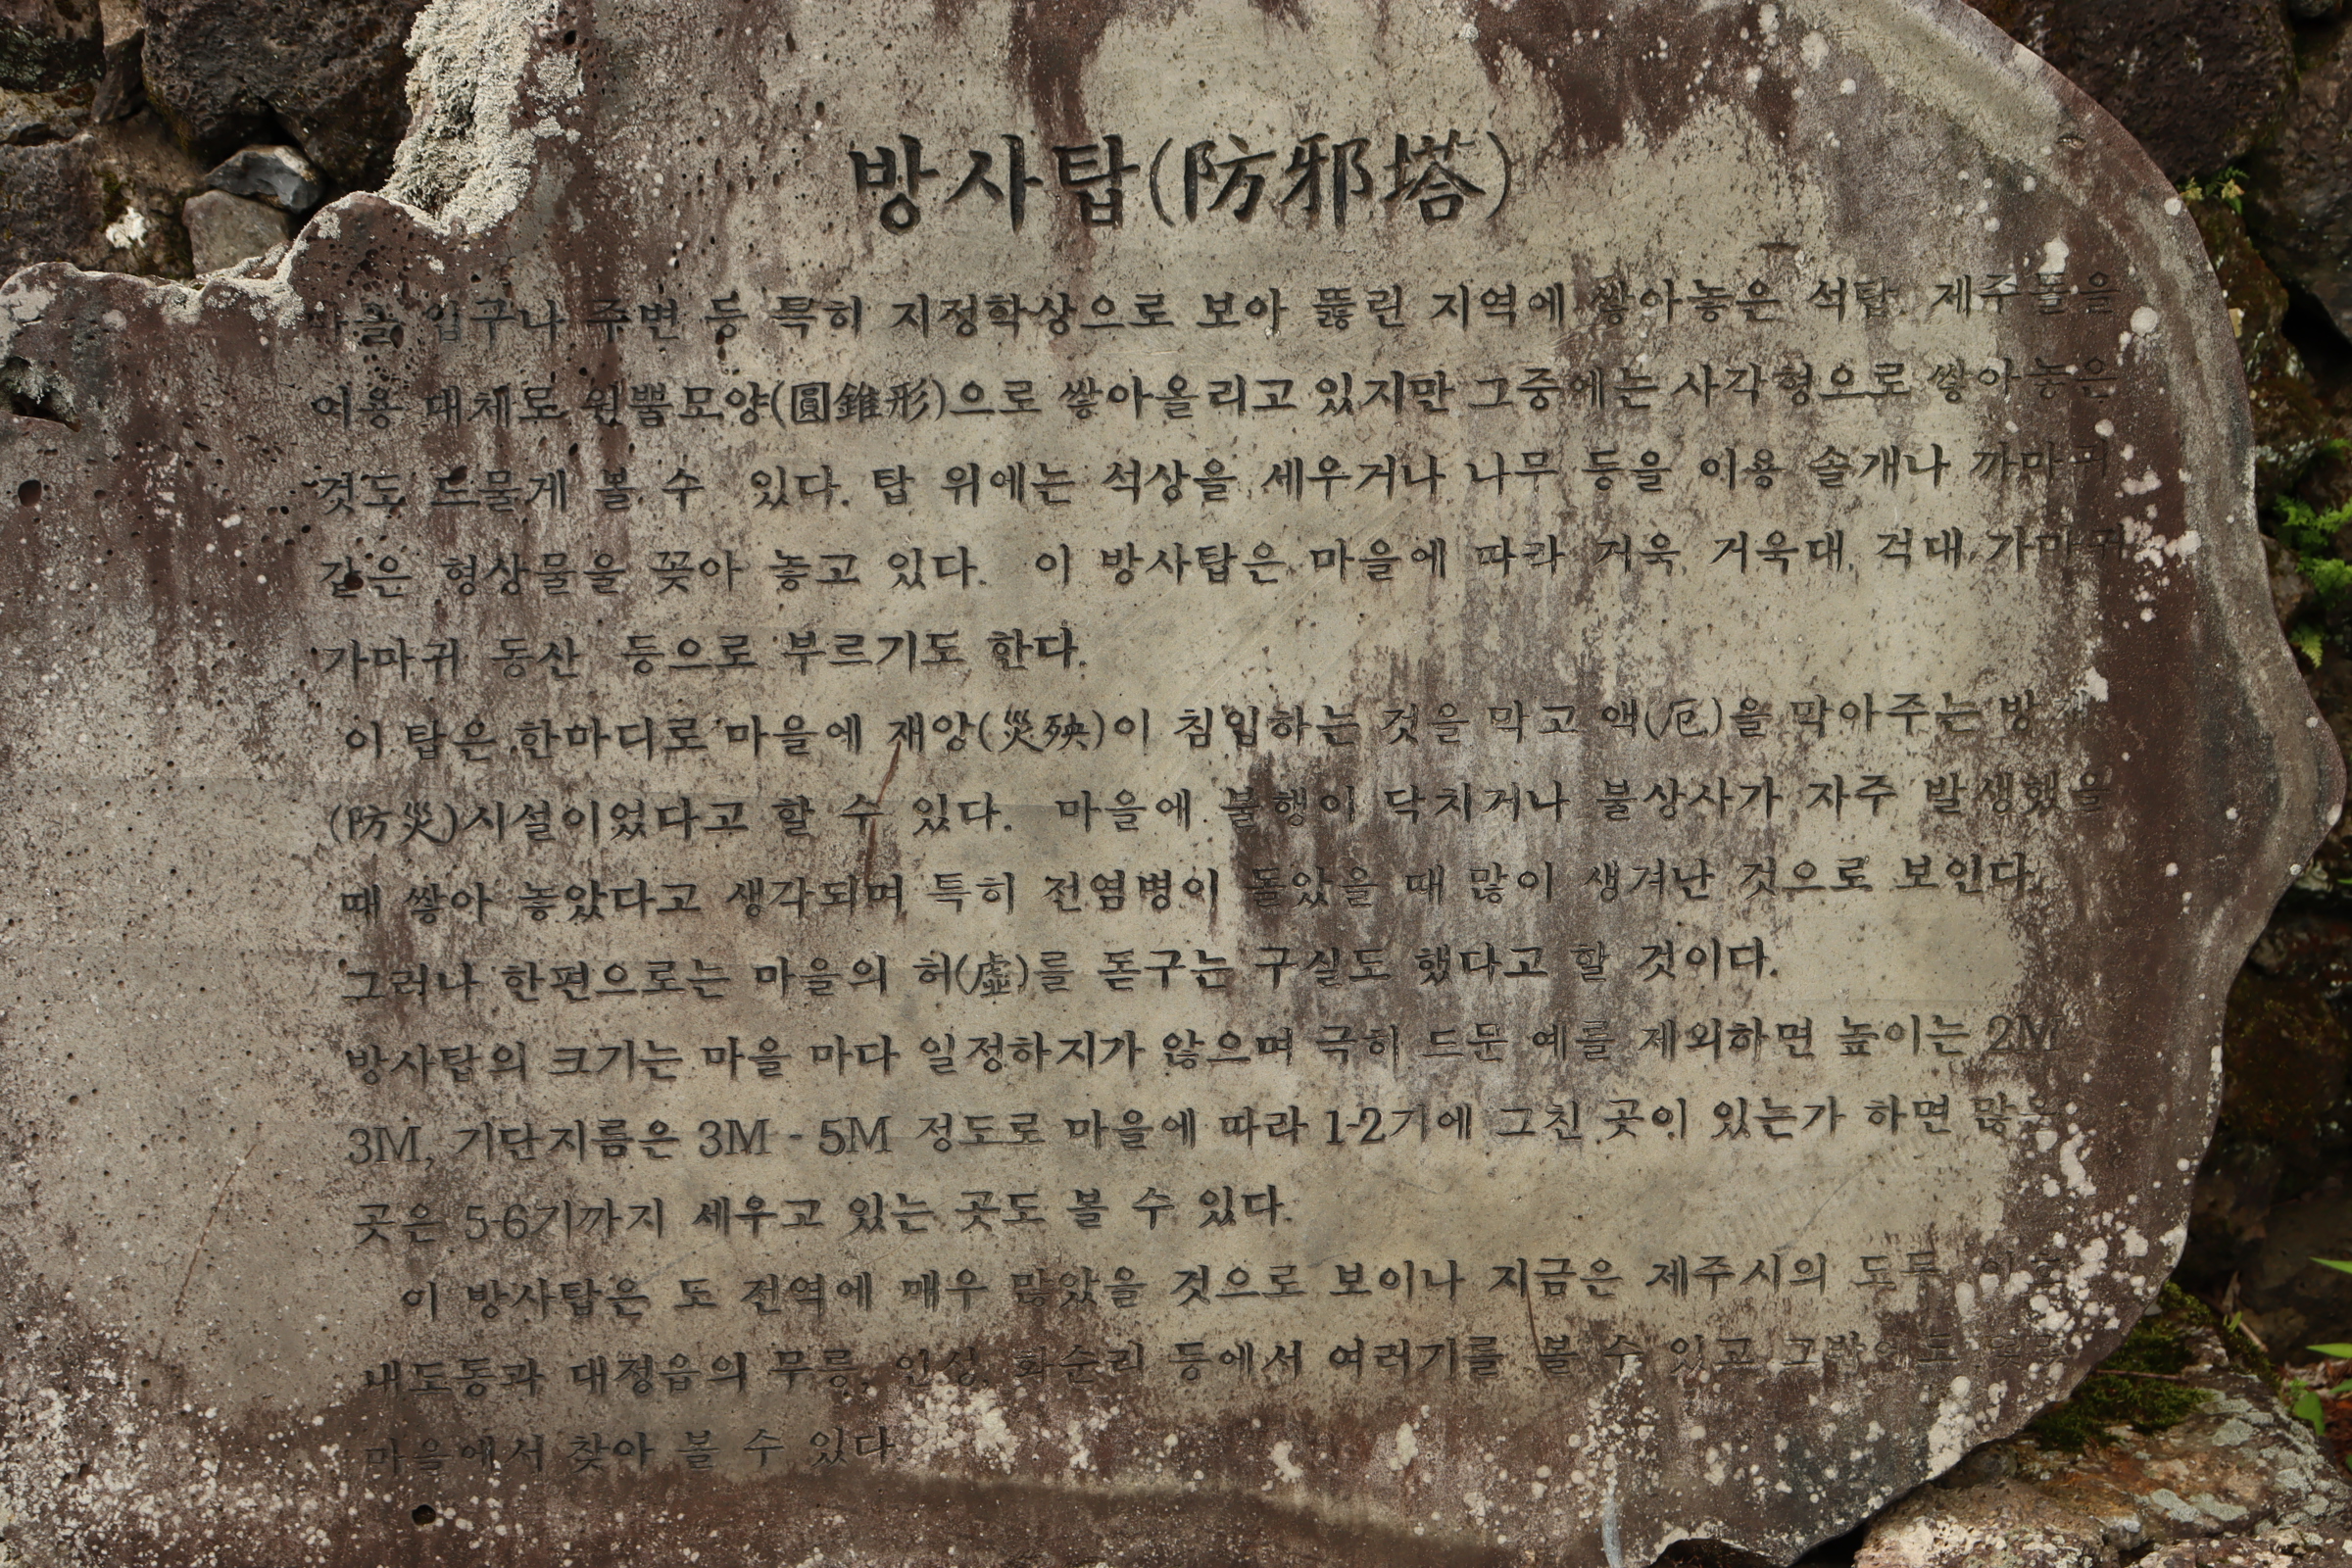 방사탑(防邪塔)
마을 입구나 주변 등 특히 지정학상으로 보아 뚫린 지역에 쌓아놓은 석탑. 제주돌을
이용 대체로 원뿔모양(圓錐形)으로 쌓아올리고 있지만 그중에는 사각형으로 쌓아놓은
것도 드물게 볼 수 있다. 탑 위에는 석상을 세우거나 나무 등을 이용 솔개나 까마귀
같은 형상물을 꽂아 놓고 있다. 이 방사탑은 마을에 따라 거욱, 거욱대, 걱대, 가마귀
가마귀 동산 등으로 부르기도 한다.
이 탑은 한마디로 마을에 재앙(災殃)이 침입하는 것을 막고 액(厄)을 막아주는 방
(防災)시설이었다고 할 수 있다. 마을에 불행이 닥치거나 불상사가 자주 발생했을
때 쌓아 놓았다고 생각되며 특히 전염병이 돌았을 때 많이 생겨난 것으로 보인다.
그러나 한편으로는 마을의 허(虛)를 돋구는 구실도 했다고 할 것이다.
방사탑의 크기는 마을 마다 일정하지가 않으며 극히 드문 예를 제외하면 높이는 2M
3M, 기단지름은 3M - 5M 정도로 마을에 따라 1-2기에 그친 곳이 있는가 하면 많은
곳은 5-6기까지 세우고 있는 곳도 볼 수 있다.
이 방사탑은 도 전역에 매우 많았을 것으로 보이나 지금은 제주시의 도두,
내도동과 대정읍의 무릉, 인성, 화순리 등에서 여러기를 볼 수 있고 그밖에도
마을에서 찾아 볼 수 있다